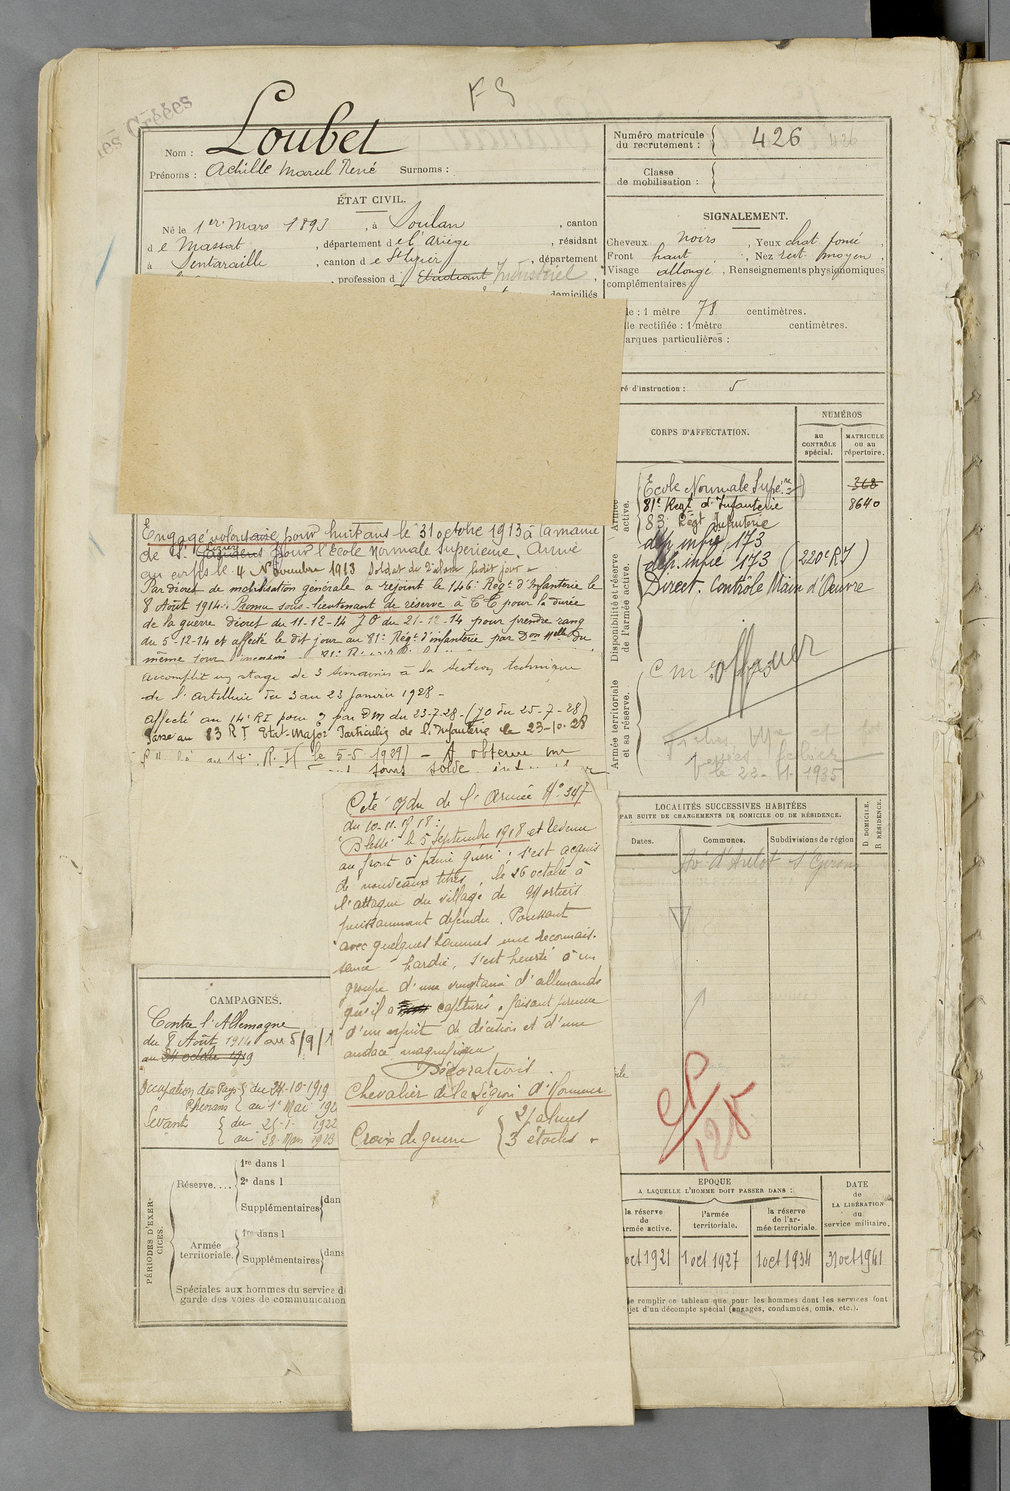 F S
les Créées
Nom : Loubet
Prénoms : Achille Marcel René Surnoms :
Numéro matricule du recrutement : 426 426
Classe de mobilisation :
ÉTAT CIVIL.
Né le 1er Mars 1893, à Soulan, canton
de Massat, département de l'Ariège, résidant
à Sentaraille, canton de St Lizier, département
, profession d Etudiant Industriel,
domiciliés
SIGNALEMENT.
Cheveux noirs, Yeux chat foncé,
Front haut, Nez rect. moyen,
Visage allongé, Renseignements physionomiques
complémentaires :
le : 1 mètre 78 centimètres.
lle rectifiée : 1 mètre centimètres.
arques particulières :
ré d'instruction : 5
CORPS D'AFFECTATION.
NUMÉROS
au CONTRÔLE spécial.
MATRICULE ou au répertoire.
Armée active.
Ecole Normale Supére
368
81e Régt d'Infanterie
8640
83 Régt Infanterie
dép. infie 173
dép. infie 173 (220e RI)
Direct. Contrôle Main d'Oeuvre
Disponibilité et réserve de l'armée active.
Armée territoriale et sa réserve.
versés fichier
le 22-11-1935
Engagé volontaire pour huit ans le 31 octobre 1913 à la mairie
de St. Girons pour l'Ecole Normale Supérieure, Arrivé
au corps le 4 Novembre 1913 Soldat de 2e classe ledit jour -
Par décret de mobilisation générale a rejoint le 146e Régt d'Infanterie le
8 Août 1914. Promu sous-lieutenant de réserve à T.T. pour la durée
de la guerre décret du 11-12-14 JO du 21-12-14 pour prendre rang
du 5-12-14 et affecté le dit jour au 81e Régt d'infanterie par Don Mlle du
même jour
Accomplit un stage de 3 semaines à la section technique
de l'artillerie du 3 au 23 janvier 1928 -
Affecté au 14e RI pour par DM du 23-7-28 - (JO du 25-7-28)
Passé au 83 RI Etat-Major Particulier de l'Infanterie le 23-10-28
au 14e R.I. (le 5-5-1929) - A obtenu un
sans solde
Cité O/ du de l'Armée N° 347
du 10-11-1918 :
"Blessé le 5 Septembre 1918 et revenu
au front à peine guéri ; s'est acquis
de nouveaux titres, le 26 octobre à
l'attaque du village de Mortiers
puissamment défendu. Poussant
avec quelques hommes une reconnais-
sance hardie, s'est heurté à un
groupe d'une vingtaine d'allemands
qu'il a capturés, faisant preuve
d'un esprit de décision et d'une
audace magnifique
Décorations.
Chevalier de la Légion d'Honneur
Croix de guerre { 2 palmes
3 étoiles
LOCALITÉS SUCCESSIVES HABITÉES
PAR SUITE DE CHANGEMENTS DE DOMICILE OU DE RÉSIDENCE.
Dates.
Communes.
Subdivisions de région
D. DOMICILE.
R. RÉSIDENCE.
St Girons
CAMPAGNES.
Contre l'Allemagne
du 8 Août 1914 au 5/9/1
au 24 octobre 1919
Occupation des Pays { du 24-10-1919
Rhénans { au 1er Mai 192
Levant { du 25-1-1922
{ au 28 Mars 1923
PÉRIODES D'EXERCICES.
Réserve....
1re dans l
2e dans l
Supplémentaires dan
Armée territoriale.
1re dans l
Supplémentaires dans
Spéciales aux hommes du service d
garde des voies de communication
128
ÉPOQUE
A LAQUELLE L'HOMME DOIT PASSER DANS :
DATE
de
LA LIBÉRATION
du
service militaire.
la réserve de l'armée active.
l'armée territoriale.
la réserve de l'armée territoriale.
oct 1921
1 oct 1927
1 oct 1934
31 oct 1941
e remplir ce tableau que pour les hommes dont les services font
jet d'un décompte spécial (engagés, condamnés, omis, etc.).